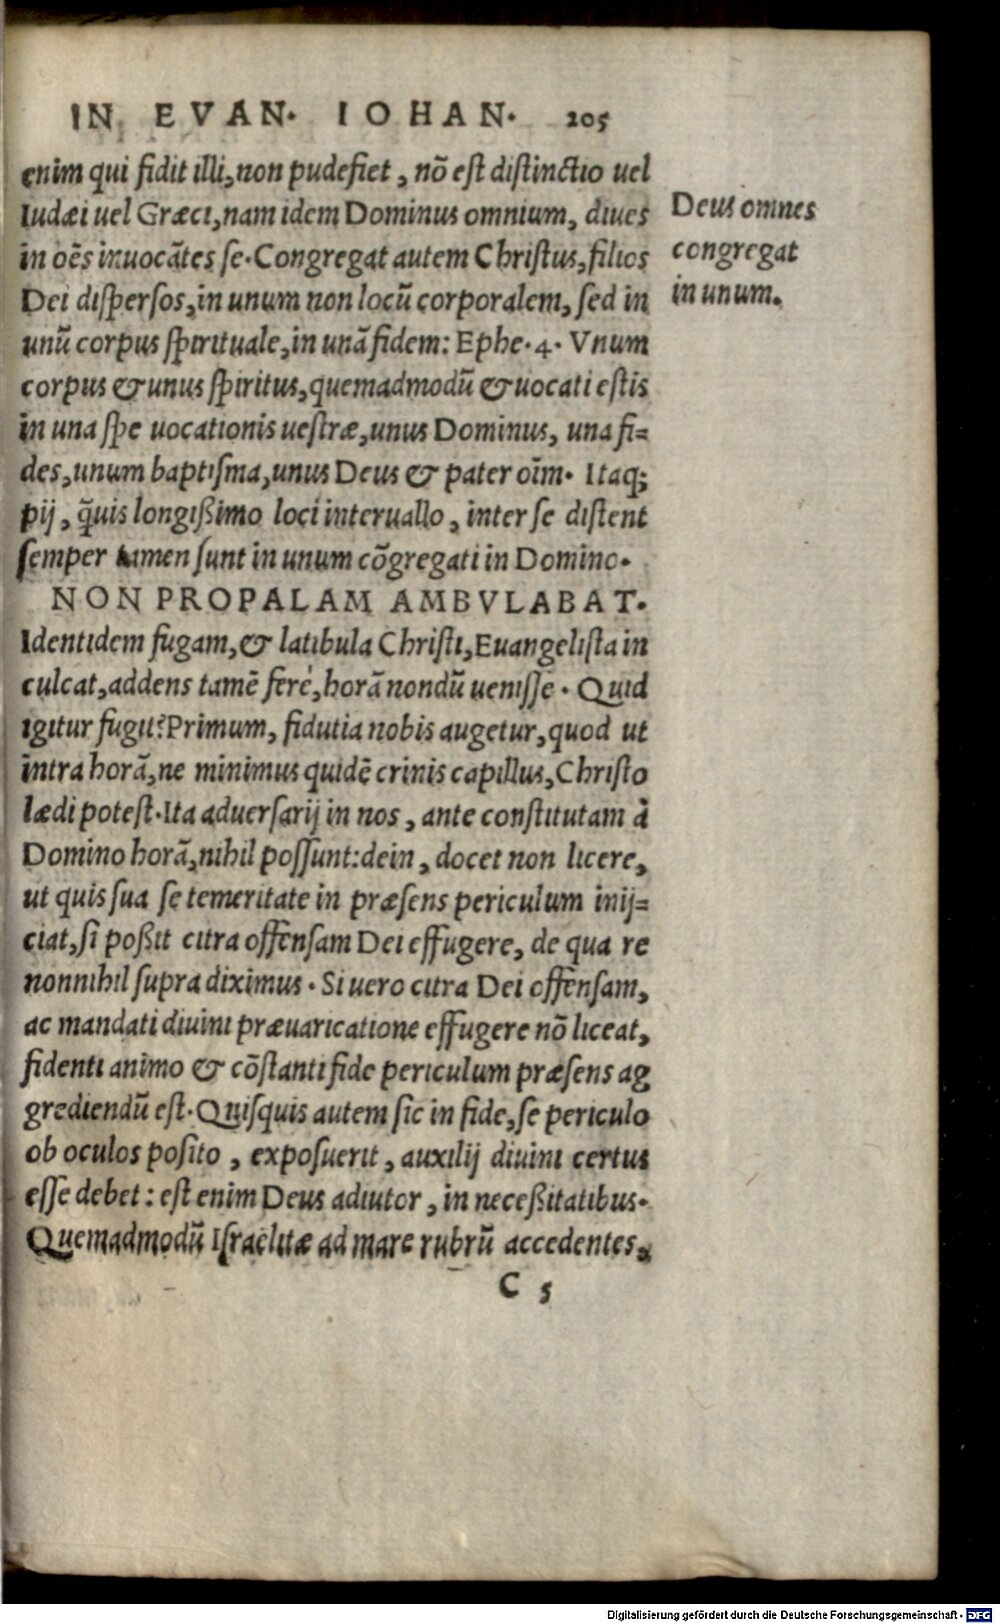 IN EVAN. IOHAN. 205
enim qui fidit illi, non pudefiet, nõ est distinctio uel
Iudæi uel Græci, nam idem Dominus omnium, diues
in oẽs inuocãtes se. Congregat autem Christus, filios
Dei dispersos, in unum non locũ corporalem, sed in
unũ corpus spirituale, in unã fidem: Ephe. 4. Vnum
corpus & unus spiritus, quemadmodũ & uocati estis
in una spe uocationis uestræ, unus Dominus, una fi=
des, unum baptisma, unus Deus & pater oĩm. Itaq;
pij, q̃uis longißimo loci interuallo, inter se distent
semper tamen sunt in unum cõgregati in Domino.
Deus omnes
congregat
in unum.
NON PROPALAM AMBVLABAT.
Identidem fugam, & latibula Christi, Euangelista in
culcat, addens tamẽ ferè, horã nondũ uenisse. Quid
igitur fugit? Primum, fidutia nobis augetur, quod ut
intra horã, ne minimus quidẽ crinis capillus, Christo
lædi potest. Ita aduersarij in nos, ante constitutam à
Domino horã, nihil possunt: dein, docet non licere,
ut quis sua se temeritate in præsens periculum inij=
ciat, si poßit citra offensam Dei effugere, de qua re
nonnihil supra diximus. Si uero citra Dei offensam,
ac mandati diuini præuaricatione effugere nõ liceat,
fidenti animo & cõstanti fide periculum præsens ag
grediendũ est. Quisquis autem sic in fide, se periculo
ob oculos posito, exposuerit, auxilij diuini certus
esse debet: est enim Deus adiutor, in neceßitatibus.
Quemadmodũ Israëlitæ ad mare rubrũ accedentes,
C 5
Digitalisierung gefördert durch die Deutsche Forschungsgemeinschaft - DFG